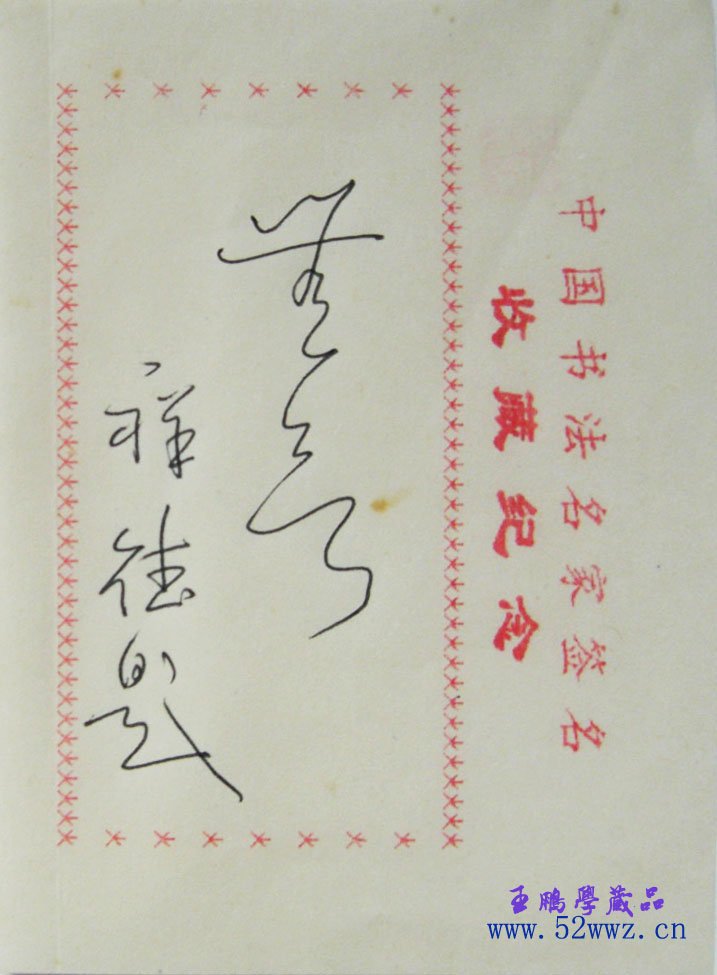 中国书法名家签名
收藏纪念
祥 题
王鵬學藏品
www.52wwz.cn